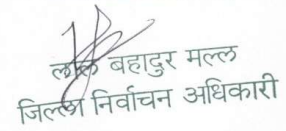 लोक बहादुर मल्ल
जिल्ला निर्वाचन अधिकारी